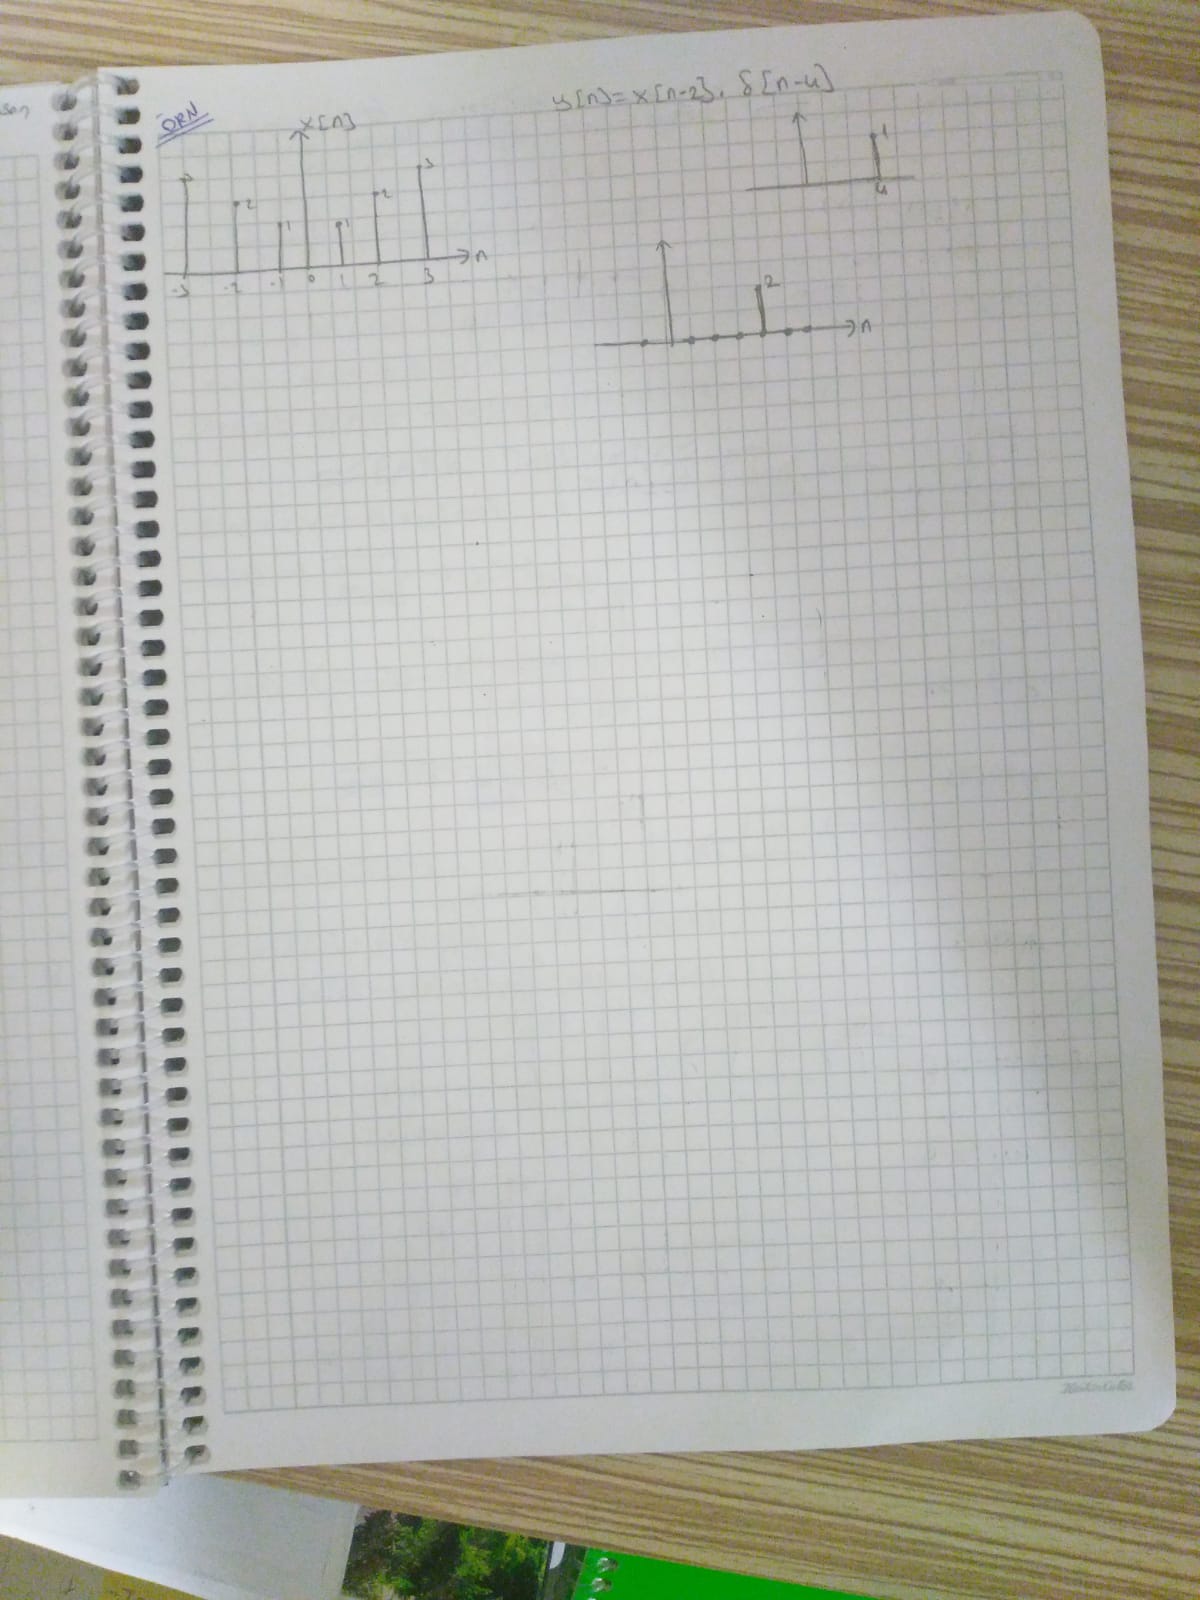 ÖRN
x[n]
3 2 1 1 2 3
-3 -2 -1 0 1 2 3 n
y[n] = x[n-2] . δ[n-4]
1
4
2
n